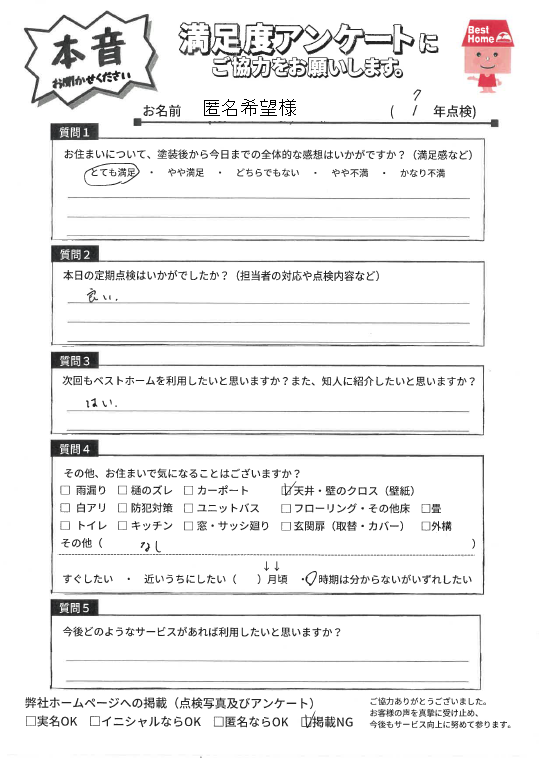 本音
お聞かせください
満足度アンケートに
ご協力をお願いします。
Best Home
お名前 匿名希望様 ( 7 年点検)
質問1
お住まいについて、塗装後から今日までの全体的な感想はいかがですか？（満足感など）
とても満足 ・ やや満足 ・ どちらでもない ・ やや不満 ・ かなり不満
質問2
本日の定期点検はいかがでしたか？（担当者の対応や点検内容など）
良い.
質問3
次回もベストホームを利用したいと思いますか？また、知人に紹介したいと思いますか？
はい.
質問4
その他、お住まいで気になることはございますか？
□ 雨漏り □ 樋のズレ □ カーポート ☑天井・壁のクロス（壁紙）
□ 白アリ □ 防犯対策 □ ユニットバス □ フローリング・その他床 □畳
□ トイレ □ キッチン □ 窓・サッシ廻り □ 玄関扉（取替・カバー） □外構
その他（ なし ）
↓↓
すぐしたい ・ 近いうちにしたい（ ）月頃 ・ 時期は分からないがいずれしたい
質問5
今後どのようなサービスがあれば利用したいと思いますか？
弊社ホームページへの掲載（点検写真及びアンケート）
□実名OK □イニシャルならOK □匿名ならOK ☑掲載NG
ご協力ありがとうございました。
お客様の声を真摯に受け止め、
今後もサービス向上に努めて参ります。